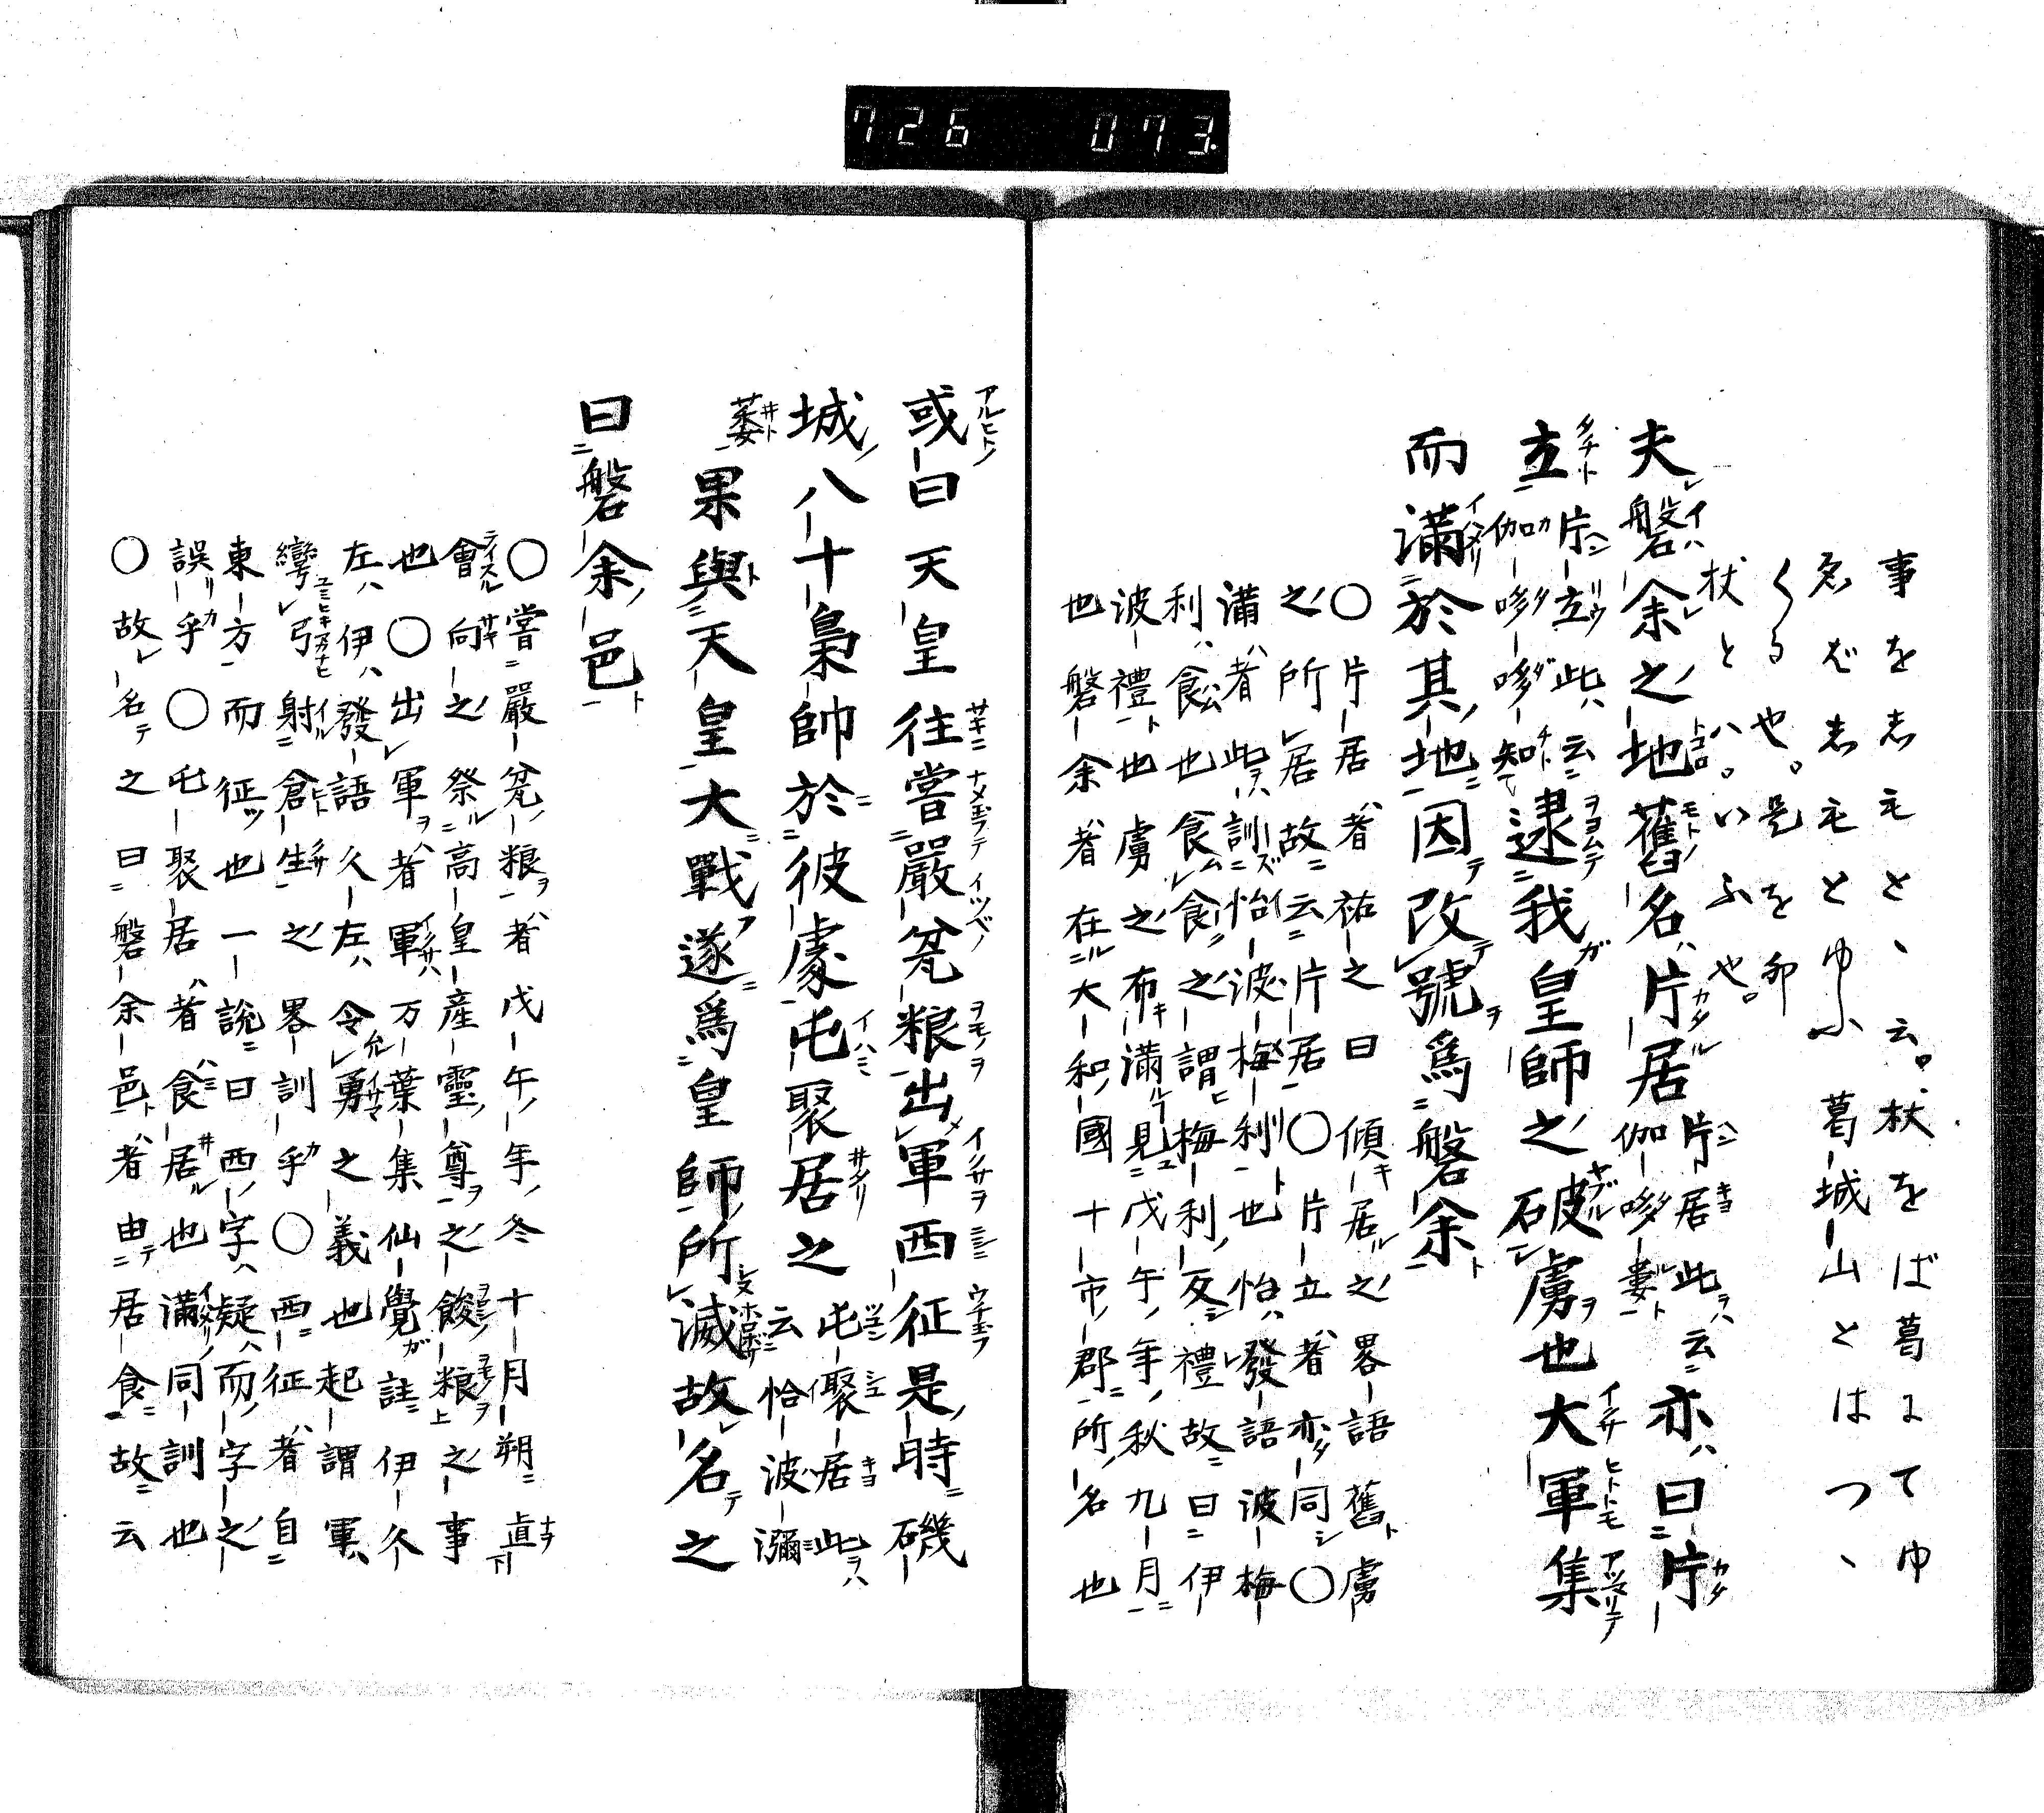 726 073
事を志モと、云。杖をば葛にてゆ
ゑば志モとゆふ葛城山とはつゝ
くるや。是を卯
杖とハ。いふや。
夫磐余之地舊名片居片居此云伽哆婁亦曰片
立片立此云伽哆哆知逮我皇師之破虜也大軍集
而滿於其地因改號爲磐余
〇片居者祐之曰傾居之畧語舊虜
之所居故云片居〇片立者亦同〇
滿者此訓怡波梅利也怡發語波梅
利食也食食之謂梅利反禮故曰伊
波禮也虜之布滿見戊午年秋九月
也磐余者在大和國十市郡所名也
或曰天皇往嘗嚴瓮粮出軍西征是時磯
城八十梟帥於彼處屯聚居之屯聚居此云恰波瀰
萎果與天皇大戰遂爲皇師所滅故名之
曰磐余邑
〇嘗嚴瓮粮者戊午年冬十月朔直
會向之祭高皇産靈尊之餕粮之事
也〇出軍者軍万葉集仙覺註伊久
左伊發語久左令勇之義也起謂軍
彎弓射倉生之畧訓乎〇西征者自
東方而征也一説曰西字疑而字之
誤乎〇屯聚居者食居也滿同訓也
〇故名之曰磐余邑者由居食故云